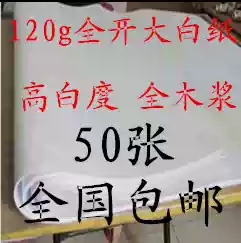 120g全开大白纸
高白度 全木浆
50张
全国包邮